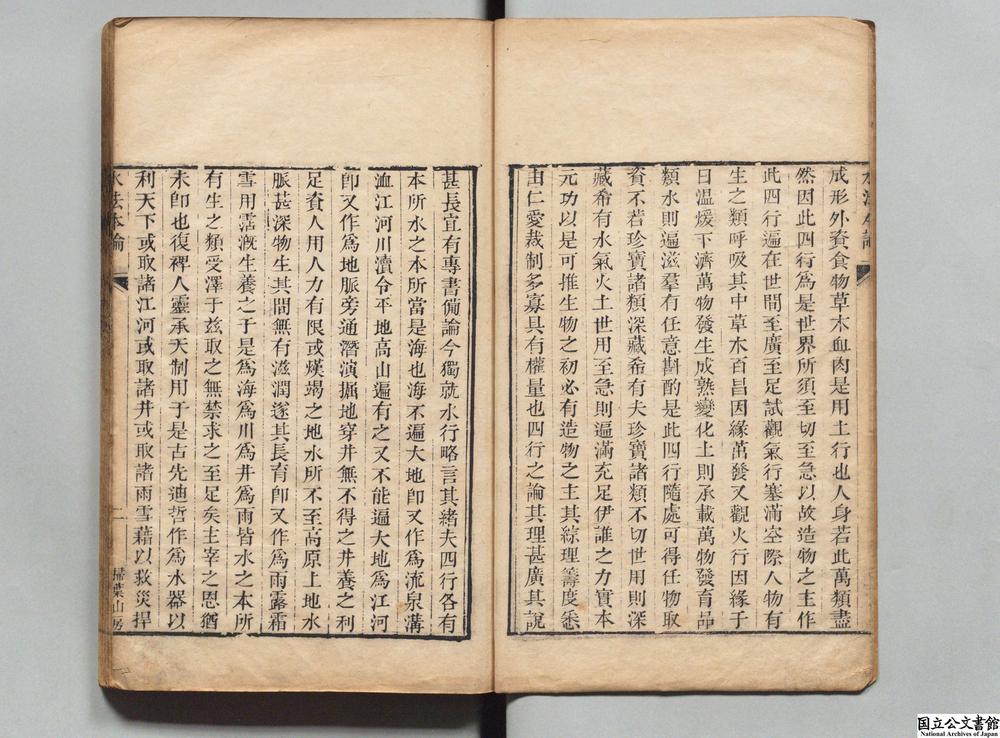 水法本論
成形外資食物草木血肉是用土行也人身若此萬類盡
然因此四行爲是世界所須至切至急以故造物之主作
此四行遍在世間至廣至足試觀氣行塞滿空際人物有
生之類呼吸其中草木百昌因緣萬發又觀火行因緣于
日溫煖下濟萬物發生成熟變化土則承載萬物發育品
類水則遍滋羣有任意斟酌是此四行隨處可得任物取
資不若珍寶諸類深藏希有夫珍寶諸類不切世用則深
藏希有水氣火土世用至急則遍滿充足伊誰之力實本
元功以是可推生物之初必有造物之主其綜理籌度悉
由仁愛裁制多寡具有權量也四行之論其理甚廣其說
甚長宜有專書備論今獨就水行略言其緒夫四行各有
本所水之本所當是海也海不遍大地卽又作爲流泉溝
洫江河川瀆分平地高山遍有之又不能遍大地爲江河
卽又作爲地脈旁通潛演掘地穿井無不得之井養之利
足資人用人力有限或熯竭之地水所不至高原上地水
脈甚深物生其間無有滋潤遂其長育卽又作爲雨露霜
雪用霑漑生養之于是爲海爲川爲井爲雨皆水之本所
有生之類受澤于玆取之無禁求之至足矣主宰之恩猶
未卽也復裨人靈承天制用于是古先迪哲作爲水器以
利天下或取諸江河或取諸井或取諸雨雪藉以救災捍
水法本論
二
掃葉山房
国立公文書館
National Archives of Japan